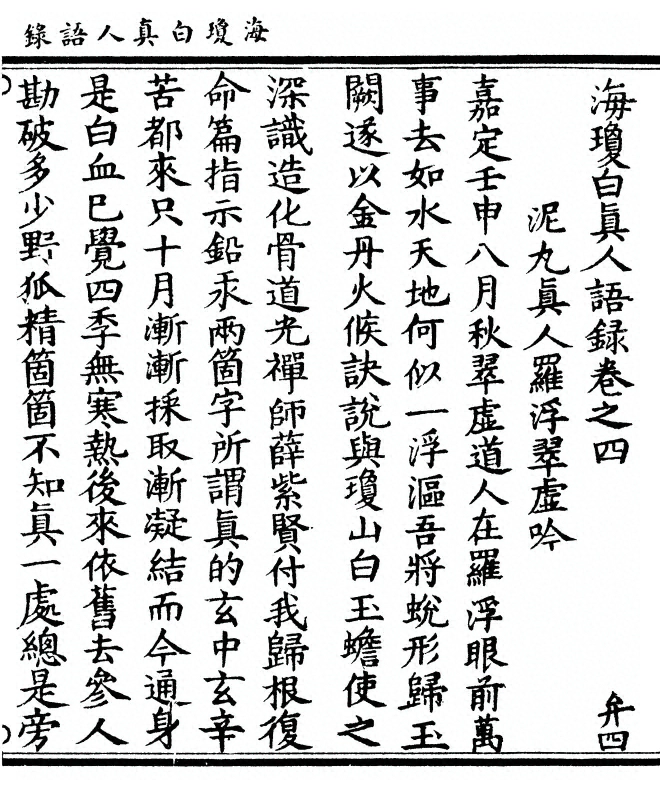 海瓊白真人語錄
海瓊白眞人語録卷之四
弁四
泥丸眞人羅浮翠虛吟
嘉定壬申八月秋翠虛道人在羅浮眼前萬
事去如水天地何似一浮漚吾將蛻形歸玉
闕遂以金丹火候訣說與瓊山白玉蟾使之
深識造化骨道光禪師薛紫賢付我歸根復
命篇指示鉛汞兩箇字所謂眞的玄中玄辛
苦都來只十月漸漸採取漸凝結而今通身
是白血巳覺四季無寒熱後來依舊去參人
勘破多少野狐精箇箇不知眞一處總是旁